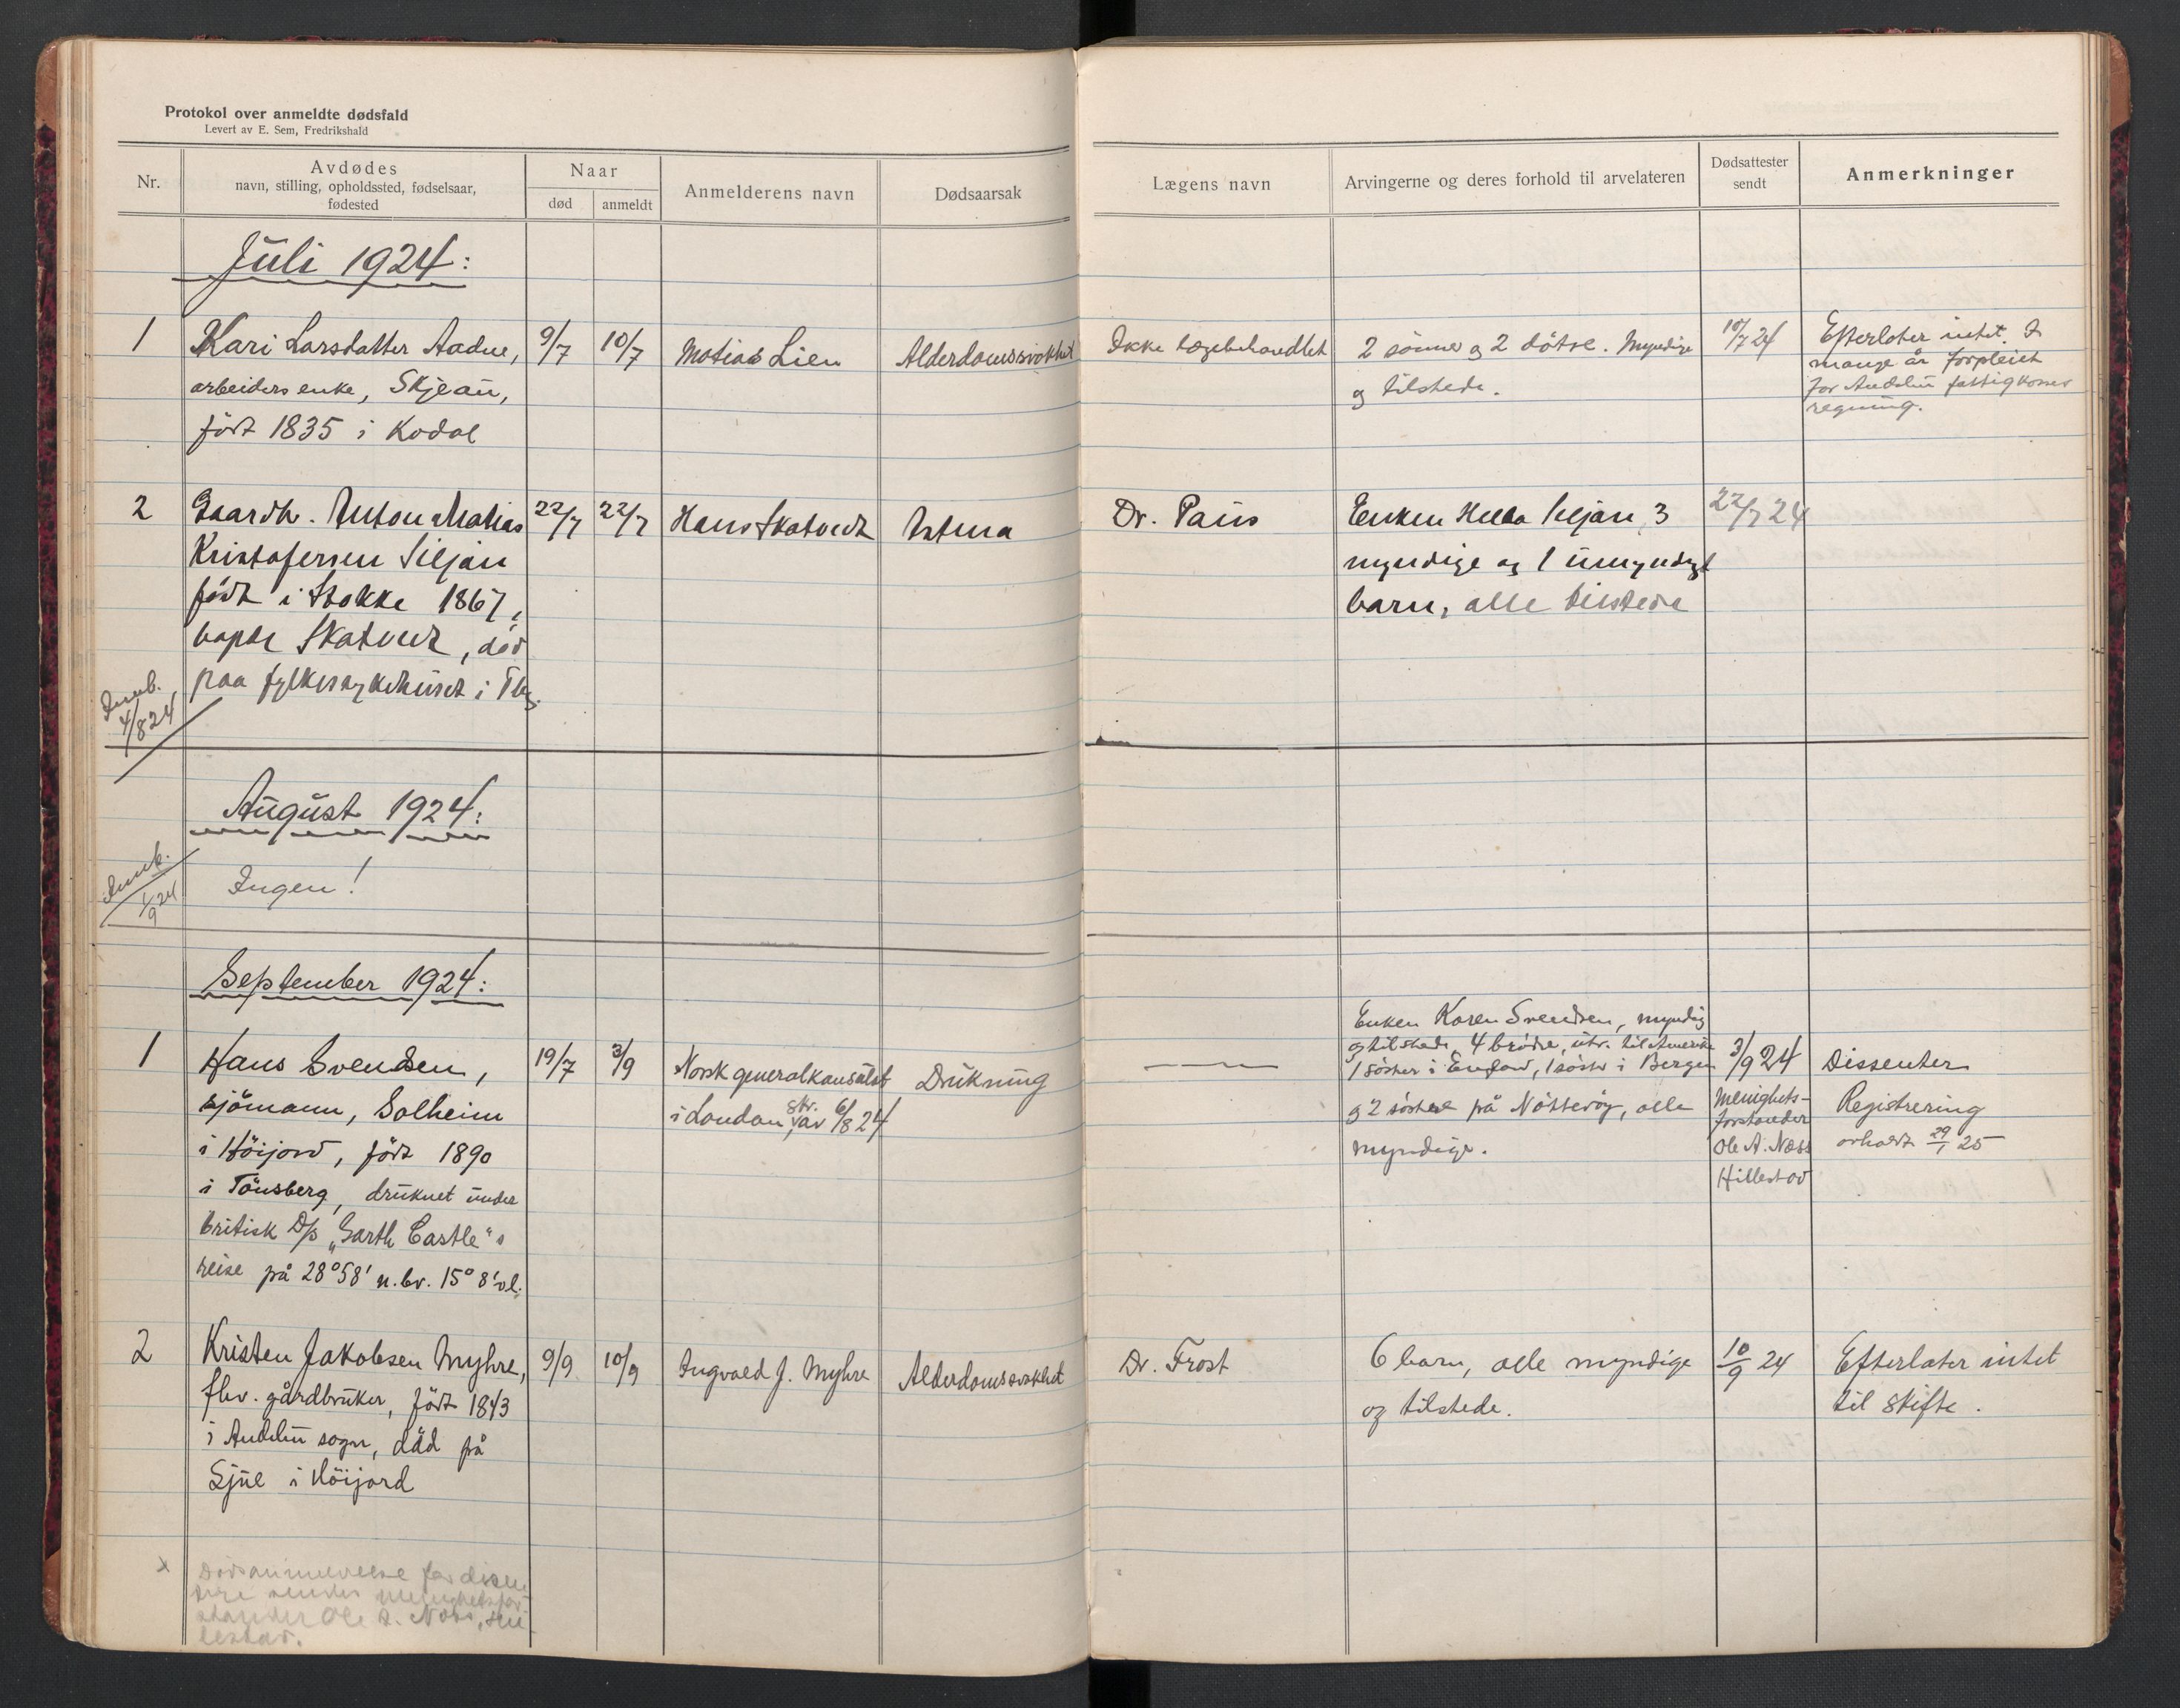 Protokol over anmeldte dødsfald
Levert av E. Sem, Fredrikshald
Nr.
Avdødes
navn, stilling, opholdssted, fødselsaar,
fødested
Naar
død
anmeldt
Anmelderens navn
Dødsaarsak
Lægens navn
Arvingerne og deres forhold til arvelateren
Dødsattester
sendt
Anmerkninger
Juli 1924:
1
Kari Larsdatter Aadne,
arbeiders enke, Skjeau,
född 1835 i Kodal
9/7
10/7
Matias Lien
Alderdomssvakhet
Ikke lægebehandlet
2 sönner og 2 dötre. Myndige
og tilstede.
10/7 24
Efterlater intet. I
mange år forpleiet
for Andebu fattigkasses
regning.
2
Gaardb. Anton Matias
Kristofersen Siljan
född i Stokke 1867,
bopæl Skatvedt, död
paa fylkessykehuset i Tbg.
22/7
22/7
Hans Skatvedt
Astma
Dr. Paus
Enken Helba Siljan, 3
myndige og 1 umyndigt
barn, alle tilstede
22/7 24
Innb.
4/8 24
August 1924:
Ingen!
Innb.
1/9 24
September 1924:
1
Hans Svendsen,
sjömann, Solheim
i Höijord, född 1890
i Tönsberg, druknet under
britisk D/s „Garth Castle“s
reise på 28°58' n.br. 15°8' öl.
19/7
3/9
Norsk generalkonsulat
i London, skr. av 6/8 24
Drukning
Enken Karen Svendsen, myndig
og tilstede, 4 brödre, utv. til Amerika
1 söster i England, 1 söster i Bergen
og 2 söstre på Nötteröy, alle
myndige.
3/9 24
Menighets-
forstander
Ole A. Næss
Hillestad
Dissenter
Registrering
avholdt 29/1 25
2
Kristen Jakobsen Myhre,
fhv. gårdbruker, född 1843
i Andebu sogn, död på
Sjue i Höijord
9/9
10/9
Ingvald J. Myhre
Alderdomssvakhet
Dr. Frost
6 barn, alle myndige
og tilstede.
10/9 24
Efterlater intet
til skifte.
x
Dödsanmeldelse for dissen-
tere sendes menighetsfor-
stander Ole A. Næss, Hil-
lestad.